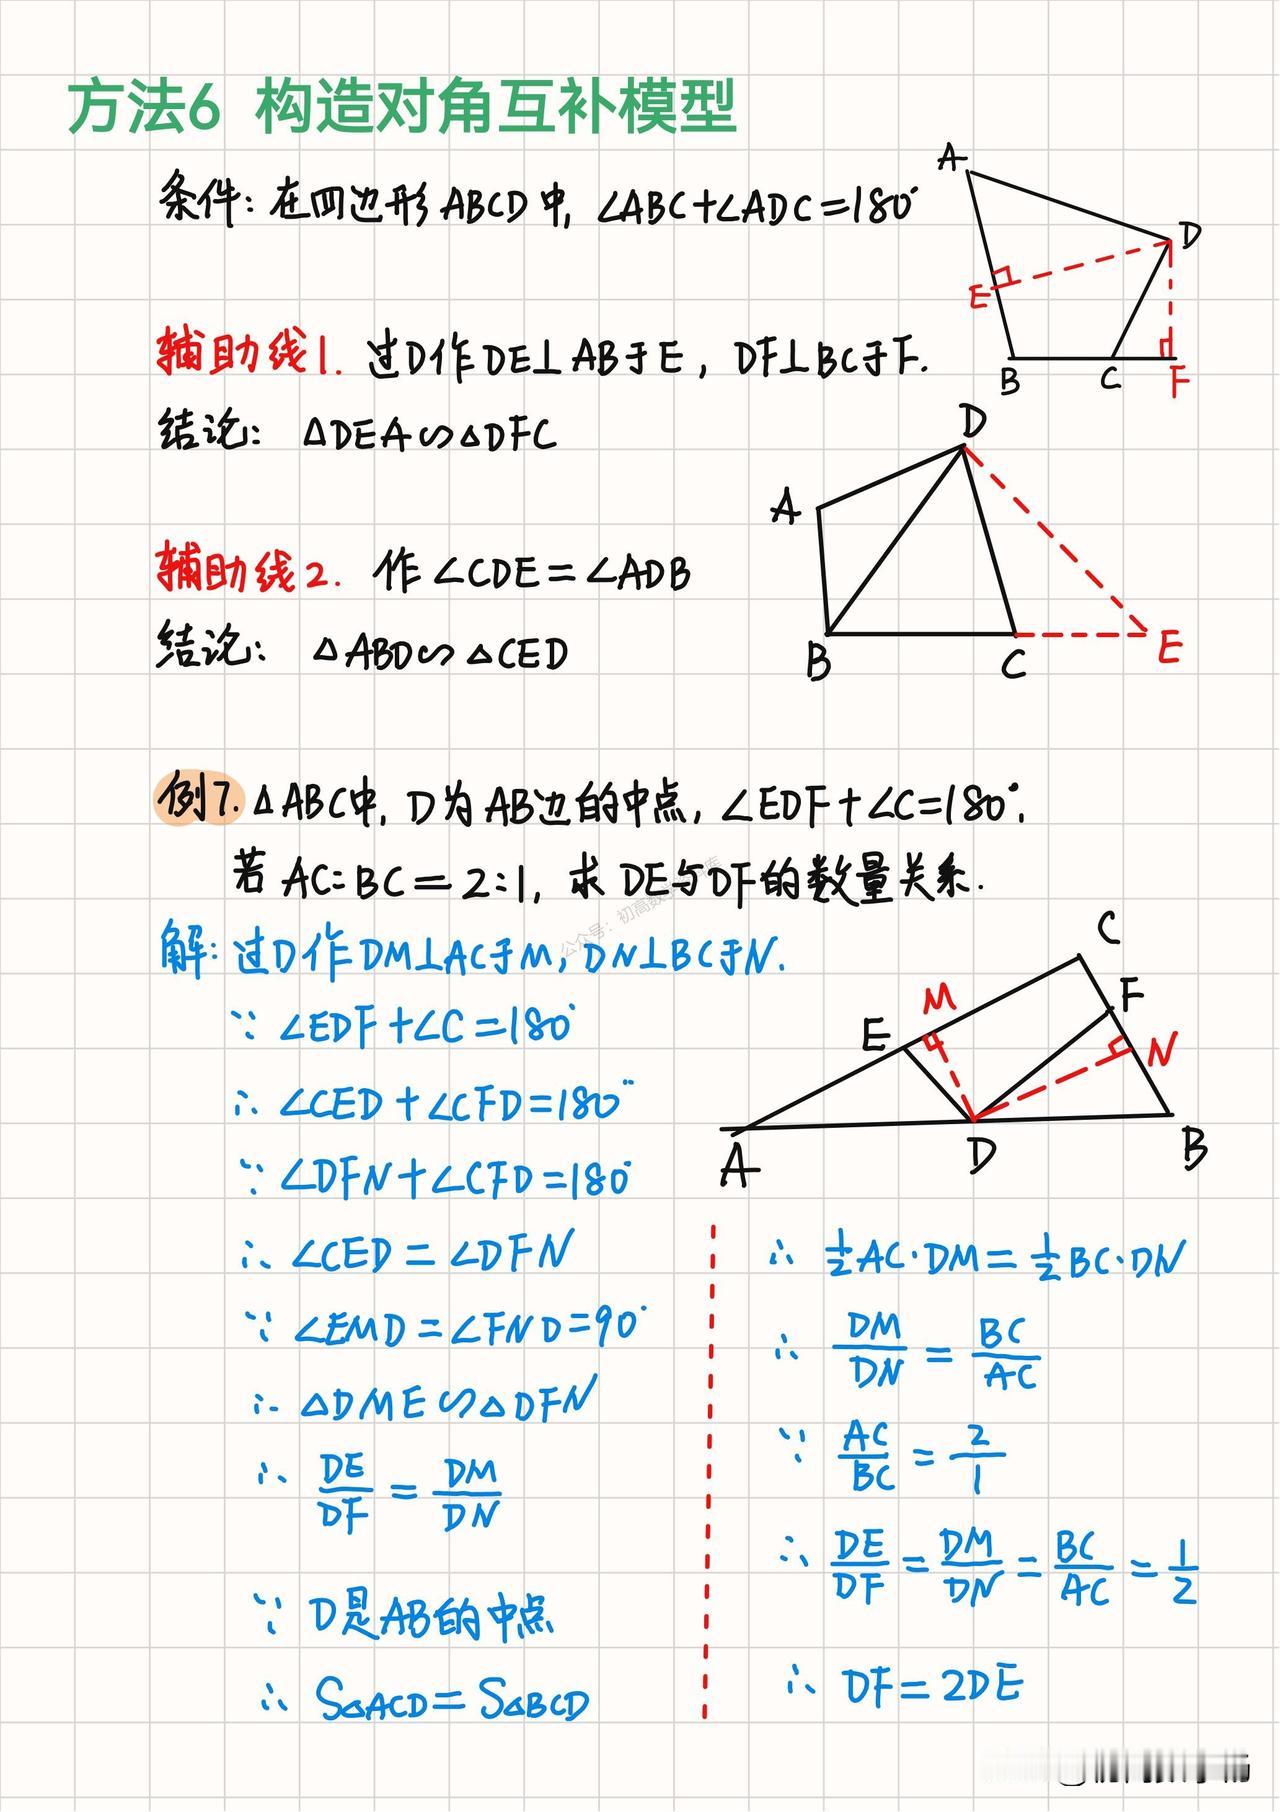 方法6 构造对角互补模型
条件：在四边形ABCD中，∠ABC+∠ADC=180°
A
D
E
B
C
F
辅助线1. 过D作DE⊥AB于E，DF⊥BC于F.
结论： △DEA∽△DFC
D
A
B
C
E
辅助线2. 作∠CDE=∠ADB
结论： △ABD∽△CED
例7. △ABC中，D为AB边的中点，∠EDF+∠C=180°.
若AC:BC=2:1，求DE与DF的数量关系.
解：过D作DM⊥AC于M，DN⊥BC于N.
C
M
F
E
N
A
D
B
∵ ∠EDF+∠C=180°
∴ ∠CED+∠CFD=180°
∵ ∠DFN+∠CFD=180°
∴ ∠CED=∠DFN
∵ ∠EMD=∠FND=90°
∴ △DME∽△DFN
∴ DE/DF = DM/DN
∵ D是AB的中点
∴ S△ACD=S△BCD
∴ 1/2AC·DM=1/2BC·DN
∴ DM/DN = BC/AC
∵ AC/BC = 2/1
∴ DE/DF = DM/DN = BC/AC = 1/2
∴ DF=2DE